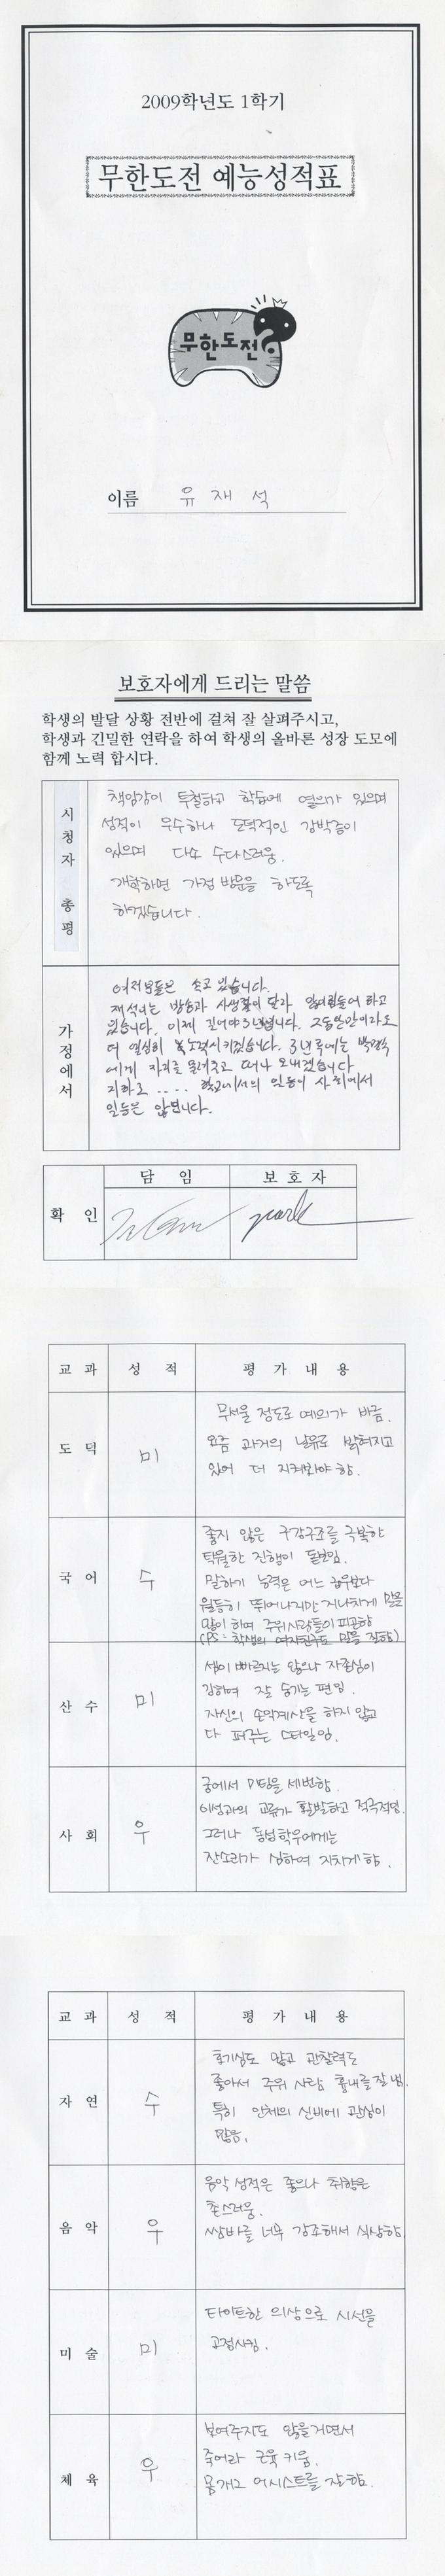 2009학년도 1학기
무한도전 예능성적표
무한도전
이름 유재석
보호자에게 드리는 말씀
학생의 발달 상황 전반에 걸쳐 잘 살펴주시고,
학생과 긴밀한 연락을 하여 학생의 올바른 성장 도모에
함께 노력 합시다.
시청자 총평
책임감이 투철하고 학습에 열의가 있으며
성적이 우수하나 도덕적인 강박증이
있으며 다소 수다스러움.
개학하면 가정 방문을 하도록
하겠습니다.
가정에서
여러분들은 속고 있습니다.
재석이는 방송과 사생활이 달라
있습니다. 이제 길어야 3년입니다. 그동안만이라도
더 열심히 시키겠습니다. 3년후에는 박명수
에게 자리를 물려주고 떠나 보내겠습니다
지화로 .... 학교에서의 일등이 사회에서
일등은 않됩니다.
담 임 보 호 자
확 인 park
교 과 성 적 평 가 내 용
도 덕 미
무서울 정도로 예의가 바름.
요즘 과거의 날유로 밝혀지고
있어 더 지켜봐야 함.
국 어 수
좋지 않은 구강구조를 극복한
탁월한 진행이 돋보임.
말하기 능력은 어느 학우보다
월등히 뛰어나지만 지나치게 말을
많이 하여 주위사람들이 피곤함
(PS: 학생의 여자친구도 말을 잘함)
산 수 미
셈이 빠르지는 않으나 자존심이
강하여 잘 숨기는 편임.
자신의 손익계산을 하지 않고
다 퍼주는 스타일임.
사 회 우
궁에서 미팅을 세번함.
이성과의 교류가 활발하고 적극적임.
그러나 동성학우에게는
잔소리가 심하여 지치게 함.
교 과 성 적 평 가 내 용
자 연 수
호기심도 많고 관찰력도
좋아서 주위 사람 흉내를 잘 냄.
특히 인체의 신비에 관심이
많음.
음 악 우
음악 성적은 좋으나 취향은
촌스러움.
쌈바를 너무 강조해서 식상함.
미 술 미
타이트한 의상으로 시선을
고정시킴.
체 육 우
보여주지도 않을거면서
죽어라 근육 키움.
몸개그 어시스트를 잘함.